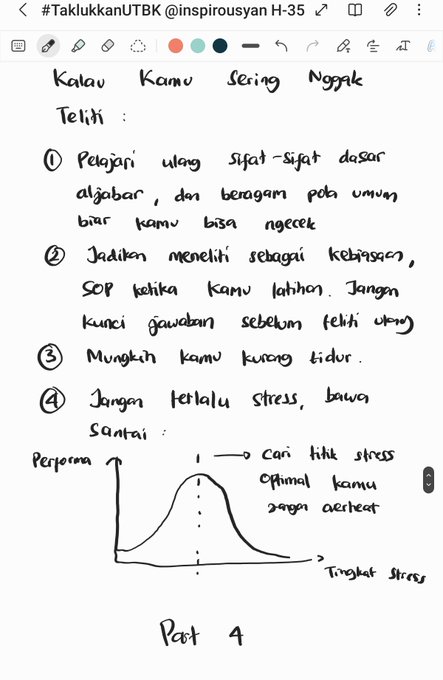 #TaklukkanUTBK @inspirousyan H-35
Kalau Kamu Sering Nggak
Teliti :
① Pelajari ulang sifat-sifat dasar
aljabar, dan beragam pola umum
biar kamu bisa ngecek
② Jadikan meneliti sebagai kebiasaan,
SOP ketika kamu latihan. Jangan
kunci jawaban sebelum teliti ulang
③ Mungkin kamu kurang tidur.
④ Jangan terlalu stress, bawa
santai :
Performa
→ Cari titik stress
optimal kamu
jangan
Tingkat stress
Part 4